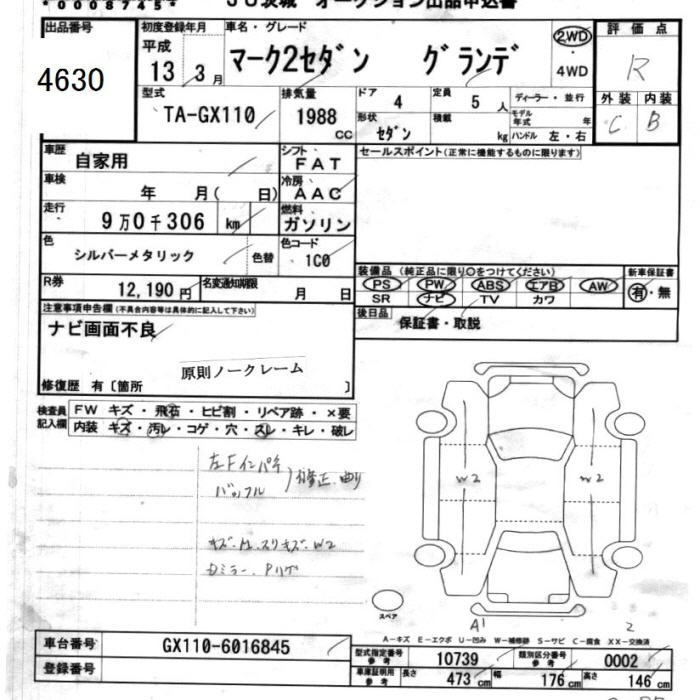 *00087457*
JU茨城 オークション出品申込書
出品番号
4630
初度登録年月
平成
13 3月
車名・グレード
マーク2セダン グランデ
2WD
4WD
評価点
R
外装 内装
C B
型式
TA-GX110
排気量
1988 CC
ドア 4
定員 5人
形状 セダン
積載 kg
ディーラー・並行
モデル年式 年
ハンドル 左・右
車歴 自家用
シフト FAT
車検 年 月( 日)
冷房 AAC
走行 9万0千306 km
燃料 ガソリン
色 シルバーメタリック 色替
色コード 1C0
R券 12,190円
名変通知期限 月 日
セールスポイント(正常に機能するものに限ります)
装備品(純正品に限り○をつけてください)
PS PW ABS エアB AW
SR ナビ TV カワ
新車保証書
有・無
後日品 保証書・取説
注意事項申告欄(不具合内容等は具体的に記入して下さい)
ナビ画面不良
原則ノークレーム
修復歴 有〔箇所 〕
検査員記入欄
FW キズ・飛石・ヒビ割・リペア跡・×要
内装 キズ・汚レ・コゲ・穴・スレ・キレ・破レ
左Fインパネ
バッフル
修正、曲り
W2
W2
キズ・凹・スリキズ・W2
スペア
A1
2
A-キズ E-エクボ U-凹み W-補修跡 S-サビ C-腐食 XX-交換済
車台番号 GX110-6016845
登録番号
型式指定番号 参考 10739
類別区分番号 参考 0002
車庫証明用 参考 長さ 473cm 幅 176cm 高さ 146cm